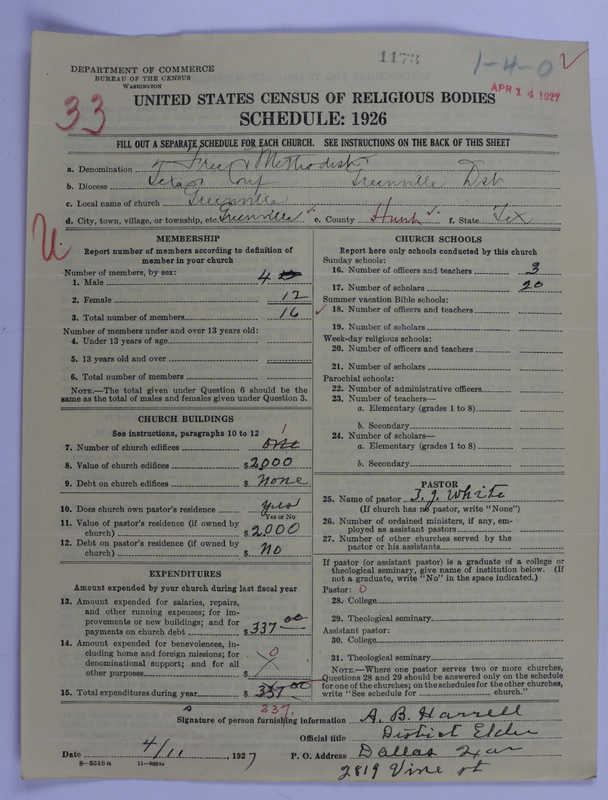 1173
1-4-0
APR 14 1927
DEPARTMENT OF COMMERCE
BUREAU OF THE CENSUS
WASHINGTON
33
UNITED STATES CENSUS OF RELIGIOUS BODIES
SCHEDULE: 1926
FILL OUT A SEPARATE SCHEDULE FOR EACH CHURCH. SEE INSTRUCTIONS ON THE BACK OF THIS SHEET
a. Denomination Free Methodist
b. Diocese Texas Conf Greenville Dst
c. Local name of church Greenville
d. City, town, village, or township, etc. Greenville e. County Hunt f. State Tex
U.
MEMBERSHIP
Report number of members according to definition of
member in your church
Number of members, by sex:
1. Male 4
2. Female 12
3. Total number of members 16
Number of members under and over 13 years old:
4. Under 13 years of age
5. 13 years old and over
6. Total number of members
NOTE.—The total given under Question 6 should be the
same as the total of males and females given under Question 3.
CHURCH BUILDINGS
See instructions, paragraphs 10 to 12
7. Number of church edifices one 1
8. Value of church edifices $2,000
9. Debt on church edifices $ None
10. Does church own pastor's residence yes
Yes or No
11. Value of pastor's residence (if owned by
church) $2,000
12. Debt on pastor's residence (if owned by
church) $ No
EXPENDITURES
Amount expended by your church during last fiscal year
13. Amount expended for salaries, repairs,
and other running expenses; for im-
provements or new buildings; and for
payments on church debt $337 00
14. Amount expended for benevolences, in-
cluding home and foreign missions; for
denominational support; and for all
other purposes $ 0
15. Total expenditures during year $ 337 00
337.
CHURCH SCHOOLS
Report here only schools conducted by this church
Sunday schools:
16. Number of officers and teachers 3
17. Number of scholars 20
Summer vacation Bible schools:
18. Number of officers and teachers
19. Number of scholars
Week-day religious schools:
20. Number of officers and teachers
21. Number of scholars
Parochial schools:
22. Number of administrative officers
23. Number of teachers—
a. Elementary (grades 1 to 8)
b. Secondary
24. Number of scholars—
a. Elementary (grades 1 to 8)
b. Secondary
PASTOR
25. Name of pastor T. J. White
(If church has no pastor, write "None")
26. Number of ordained ministers, if any, em-
ployed as assistant pastors
27. Number of other churches served by the
pastor or his assistants
If pastor (or assistant pastor) is a graduate of a college or
theological seminary, give name of institution below. (If
not a graduate, write "No" in the space indicated.)
Pastor: 0
28. College
29. Theological seminary
Assistant pastor:
30. College
31. Theological seminary
NOTE.—Where one pastor serves two or more churches,
Questions 28 and 29 should be answered only on the schedule
for one of the churches; on the schedules for the other churches,
write "See schedule for church."
Signature of person furnishing information A. B. Harrell
Official title District Elder
Date 4/11, 1927 P. O. Address Dallas Texas
8—5518a 11—6654a 2819 Vine st